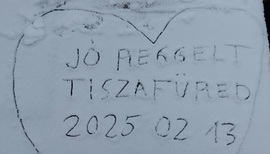 JÓ REGGELT
TISZAFÜRED
2025 02 13